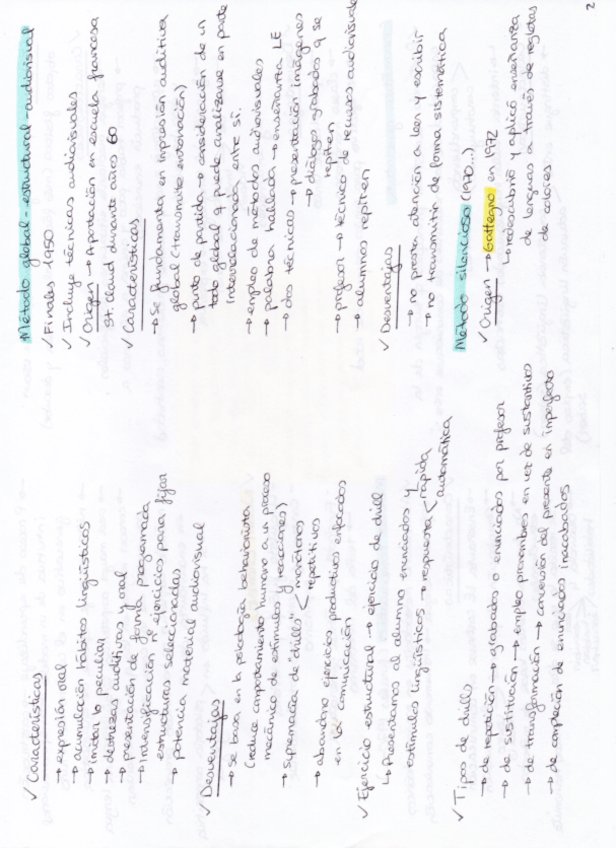 2
✓ Características
→ expresión oral
→ acumulación hábitos lingüísticos
→ imitar lo peculiar
→ destrezas auditivas y oral
→ presentación de forma programada
→ intensificación de ejercicios para fijar
estructuras seleccionadas
→ potencia material audiovisual
✓ Desventajas
→ se basa en la psicología behaviorista
(reduce comportamiento humano a un proceso
mecánico de estímulos y reacciones)
→ supremacía de "drills" < monótonos
repetitivos
→ abandono ejercicios productivos enfocados
en la comunicación
✓ Ejercicio estructural → ejercicio de drill
↳ Presentamos al alumno enunciados y
estímulos lingüísticos → respuesta < rápida
automática
✓ Tipos de drills
→ de repetición → grabados o enunciados por profesor
→ de sustitución → empleo pronombres en vez de sustantivos
→ de transformación → conversión del presente en imperfecto
→ de compleción de enunciados inacabados
Método global-estructural-audiovisual
✓ Finales 1950
✓ Incluye técnicas audiovisuales
✓ Origen → Aportación en escuela francesa
St. Claud durante años 60
✓ Características
→ se fundamenta en impresión auditiva
global (transmite entonación)
→ punto de partida → consideración de un
todo global q puede analizarse en parte
interrelacionada entre sí.
→ empleo de métodos audiovisuales
→ palabra hablada → enseñanza LE
→ dos técnicas → presentación imágenes
→ diálogos grabados q se
repiten
→ profesor → técnico de recursos audiovisuales
→ alumnos repiten
✓ Desventajas
→ no presta atención a leer y escribir
→ no transmitir de forma sistemática
Método silencioso (1970...)
✓ Origen → Gattegno en 1972
↳ redescubrió y aplicó enseñanza
de lenguas a través de regletas
de colores